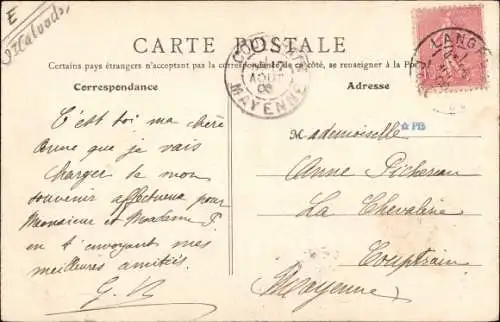 E
(Calvados)
CARTE POSTALE
Certains pays étrangers n'acceptant pas la correspondance de ce côté, se renseigner à la Poste
Correspondance
Adresse
COUPTRAIN
AOUT
MAYENNE
LANGR
C'est toi ma chère
Anne que je vais
charger de mon
souvenir affectueux pour
Monsieur et Madame P.
en t'envoyant mes
meilleures amitiés.
G. R
Mademoiselle
PB
Anne Picherean
La Chevalerie
Couptrain
Mayenne